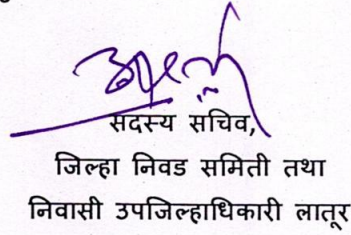 सदस्य सचिव,
जिल्हा निवड समिती तथा
निवासी उपजिल्हाधिकारी लातूर